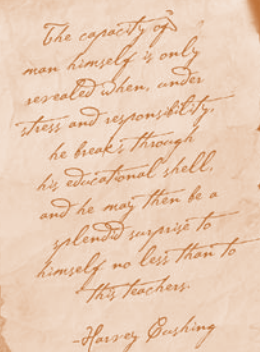 The capacity of
man himself is only
revealed when, under
stress and responsibility,
he breaks through
his educational shell,
and he may then be a
splendid surprise to
himself no less than to
this teachers.
-Harvey Cushing